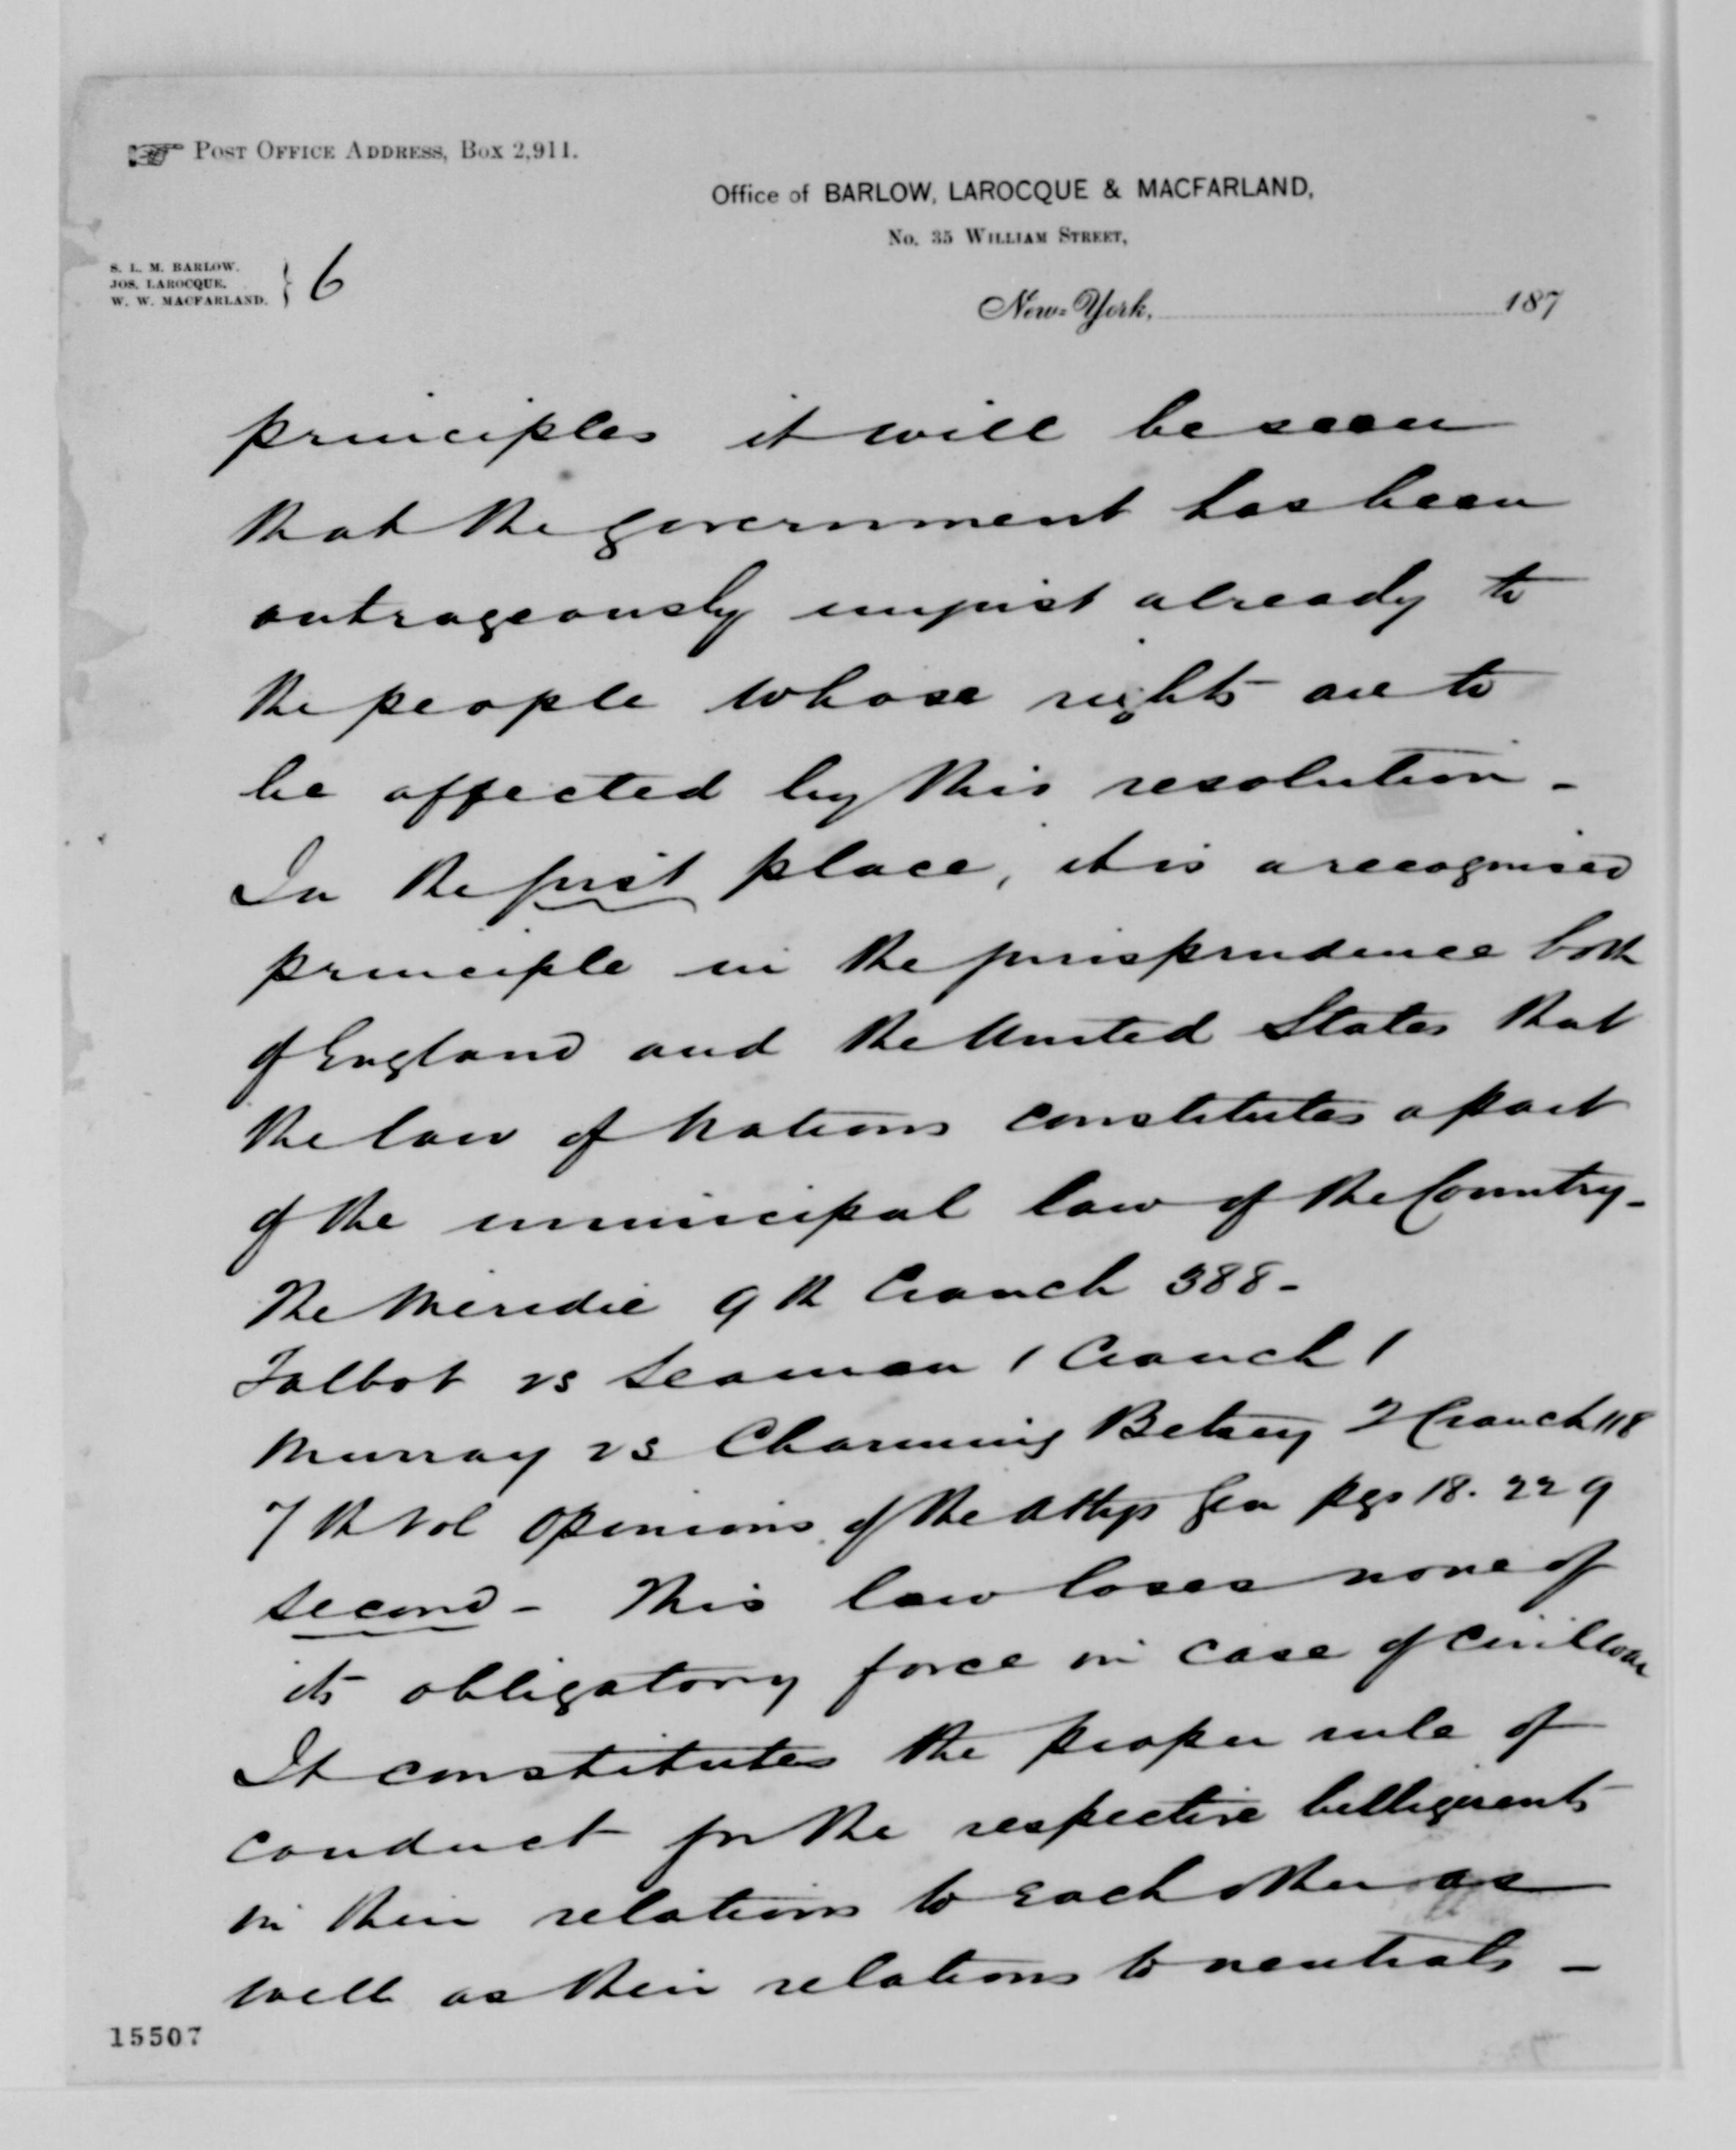 POST OFFICE ADDRESS, Box 2,911.
Office of BARLOW, LAROCQUE & MACFARLAND,
No. 35 WILLIAM STREET,
S. L. M. BARLOW.
JOS. LAROCQUE.
W. W. MACFARLAND.
6
New-York, 187
principles it will be seen
that the government has been
outrageously unjust already to
the people whose rights are to
be affected by this resolution -
In the first place, it is a recognised
principle in the jurisprudence both
of England and the United States that
the law of Nations constitutes a part
of the municipal law of the Country -
The Meredie 9th Cranch 388 -
Talbot vs Seaman 1 Cranch 1
Murray vs Charming Betsey 2 Cranch 118
7th Vol Opinions of the Attys Gen pgs 18. 229
Second - This law loses none of
its obligatory force in case of civil war
It constitutes the proper rule of
conduct for the respective belligerents
in their relations to Each other as
well as their relations to neutrals -
15507